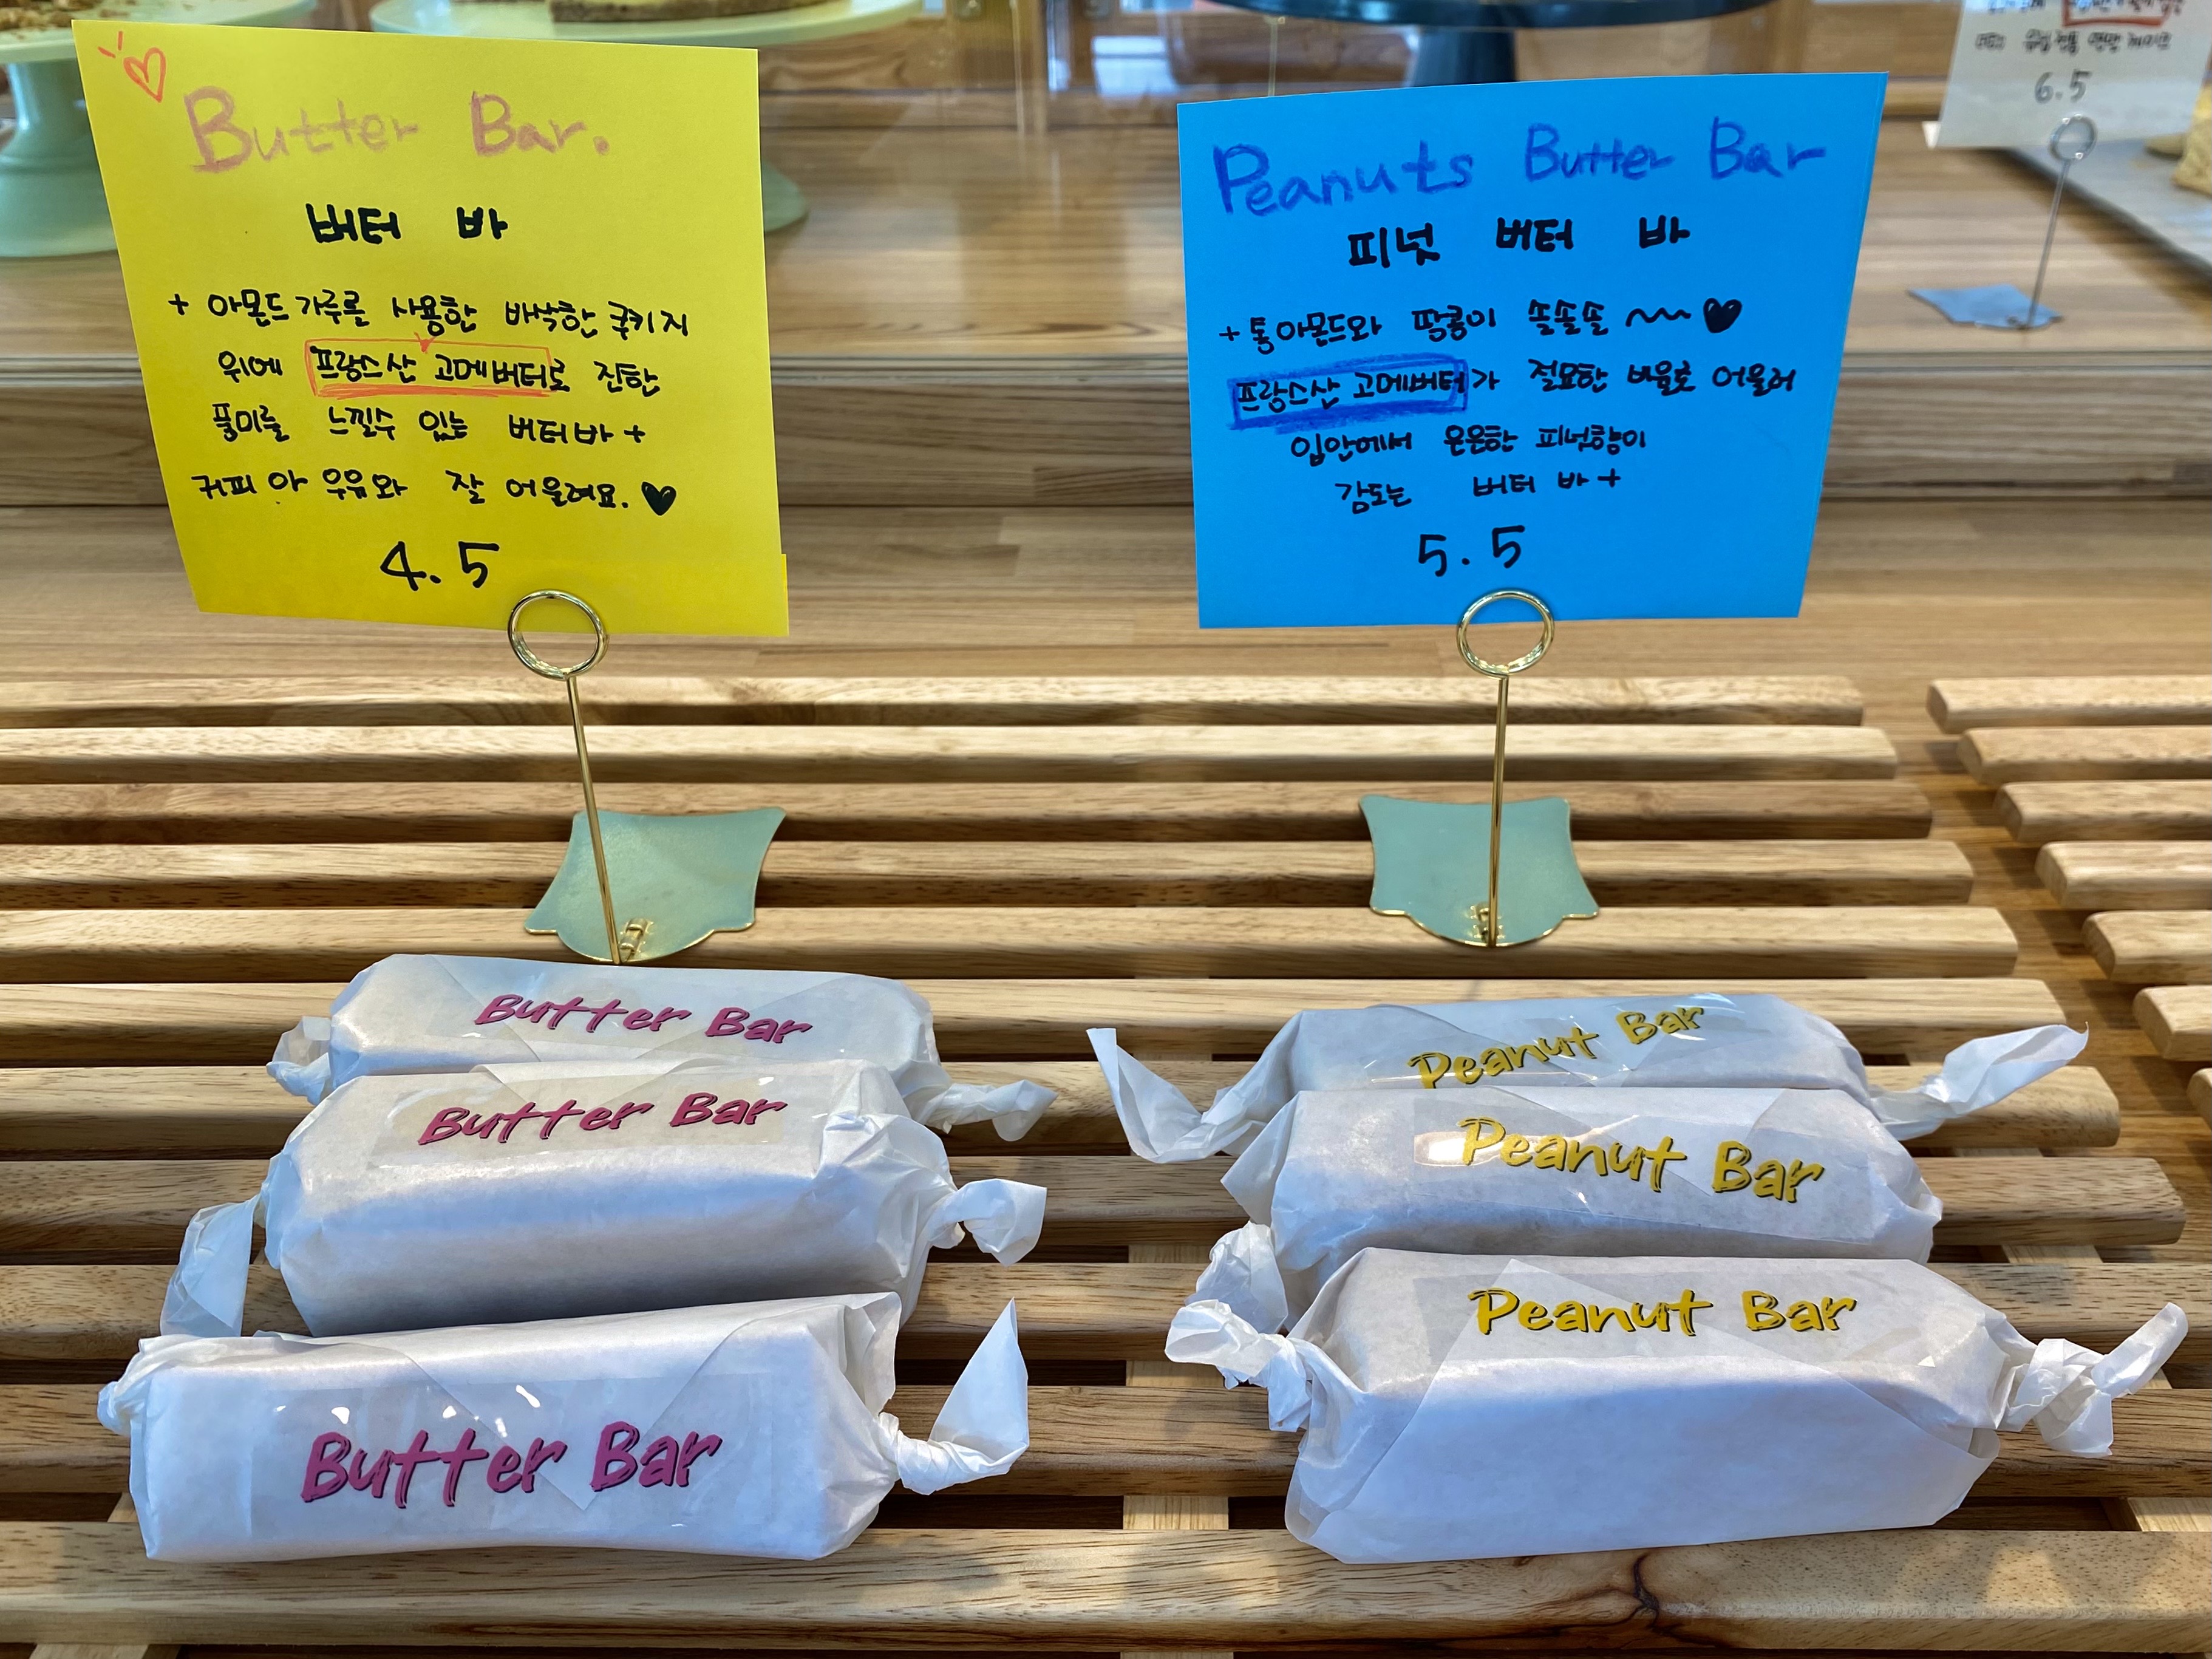 Butter Bar.
버터 바
+ 아몬드가루를 사용한 바삭한 쿠키지
위에 프랑스산 고메버터로 진한
풍미를 느낄수 있는 버터바 +
커피 아 우유와 잘 어울려요. ♥
4.5
Peanuts Butter Bar
피넛 버터 바
+ 통아몬드와 땅콩이 쏠쏠쏠 ~~ ♥
프랑스산 고메버터가 절묘한 비율로 어울려
입안에서 은은한 피넛향이
감도는 버터 바 +
5.5
6.5
Butter Bar
Butter Bar
Butter Bar
Peanut Bar
Peanut Bar
Peanut Bar